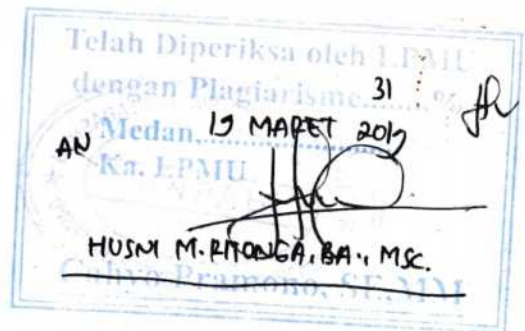 Telah Diperiksa oleh LPMU
dengan Plagiarisme 31 %
AN Medan, 19 MARET 2019
Ka. LPMU
HUSNI M. RITONGA, BA., MSC.
Cahyo Pramono, SE,MM